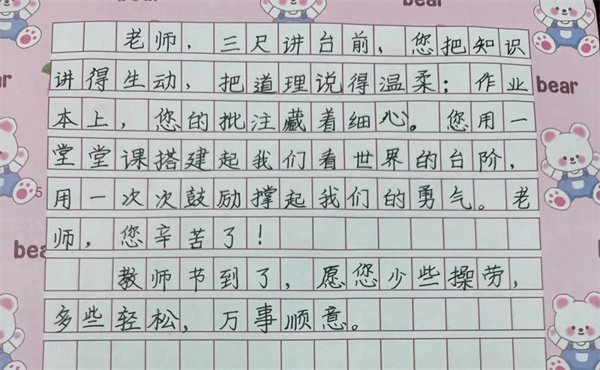 bear
bear
老师，三尺讲台前，您把知识
讲得生动，把道理说得温柔；作业
bear
本上，您的批注藏着细心。您用一
堂堂课搭建起我们看世界的台阶，
用一次次鼓励撑起我们的勇气。老
师，您辛苦了！
bear
教师节到了，愿您少些操劳，
多些轻松，万事顺意。